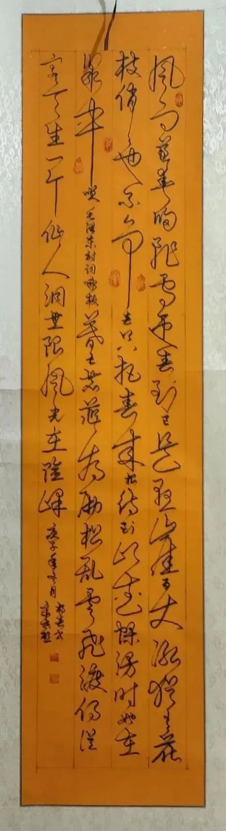 风雨送春归飞雪迎春到已是悬崖百丈冰犹有花
枝俏俏也不争春只把春来报待到山花烂漫时她在
丛中笑 毛泽东诗词 暮色苍茫看劲松乱云飞渡仍从
容天生一个仙人洞无限风光在险峰 庚子年